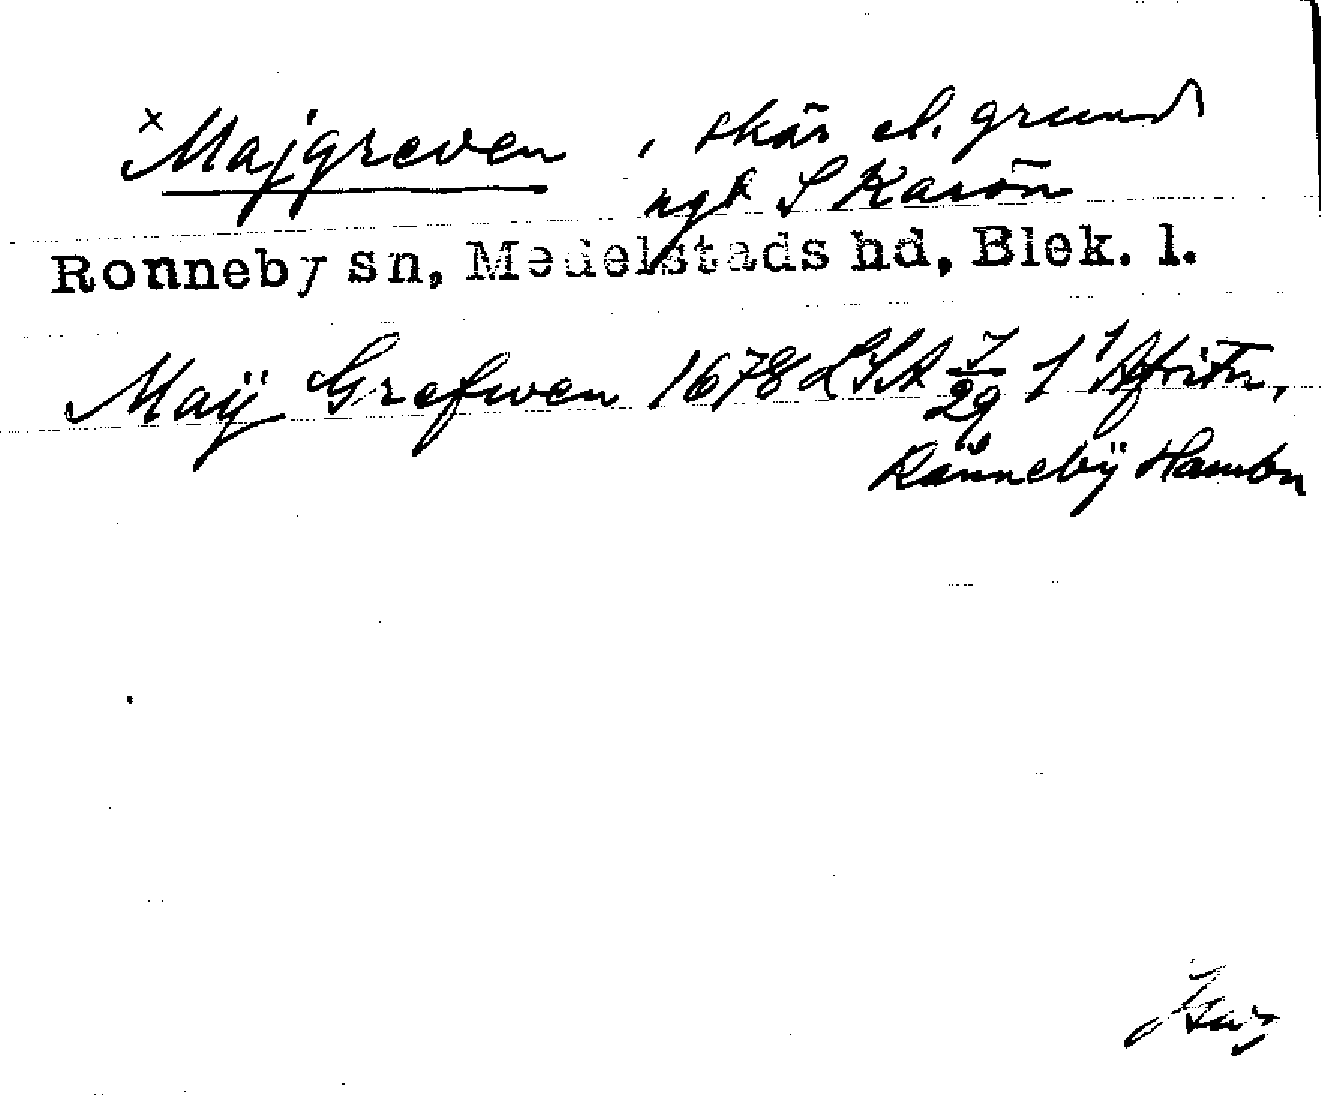 × Majgreven, skär el. grund
ngt S Karön
Ronneby sn, Medelstads hd, Blek. l.
Maÿ Grefwen 1678 LSA 7/29 1 Afritn,
Rånnebÿ Hambn